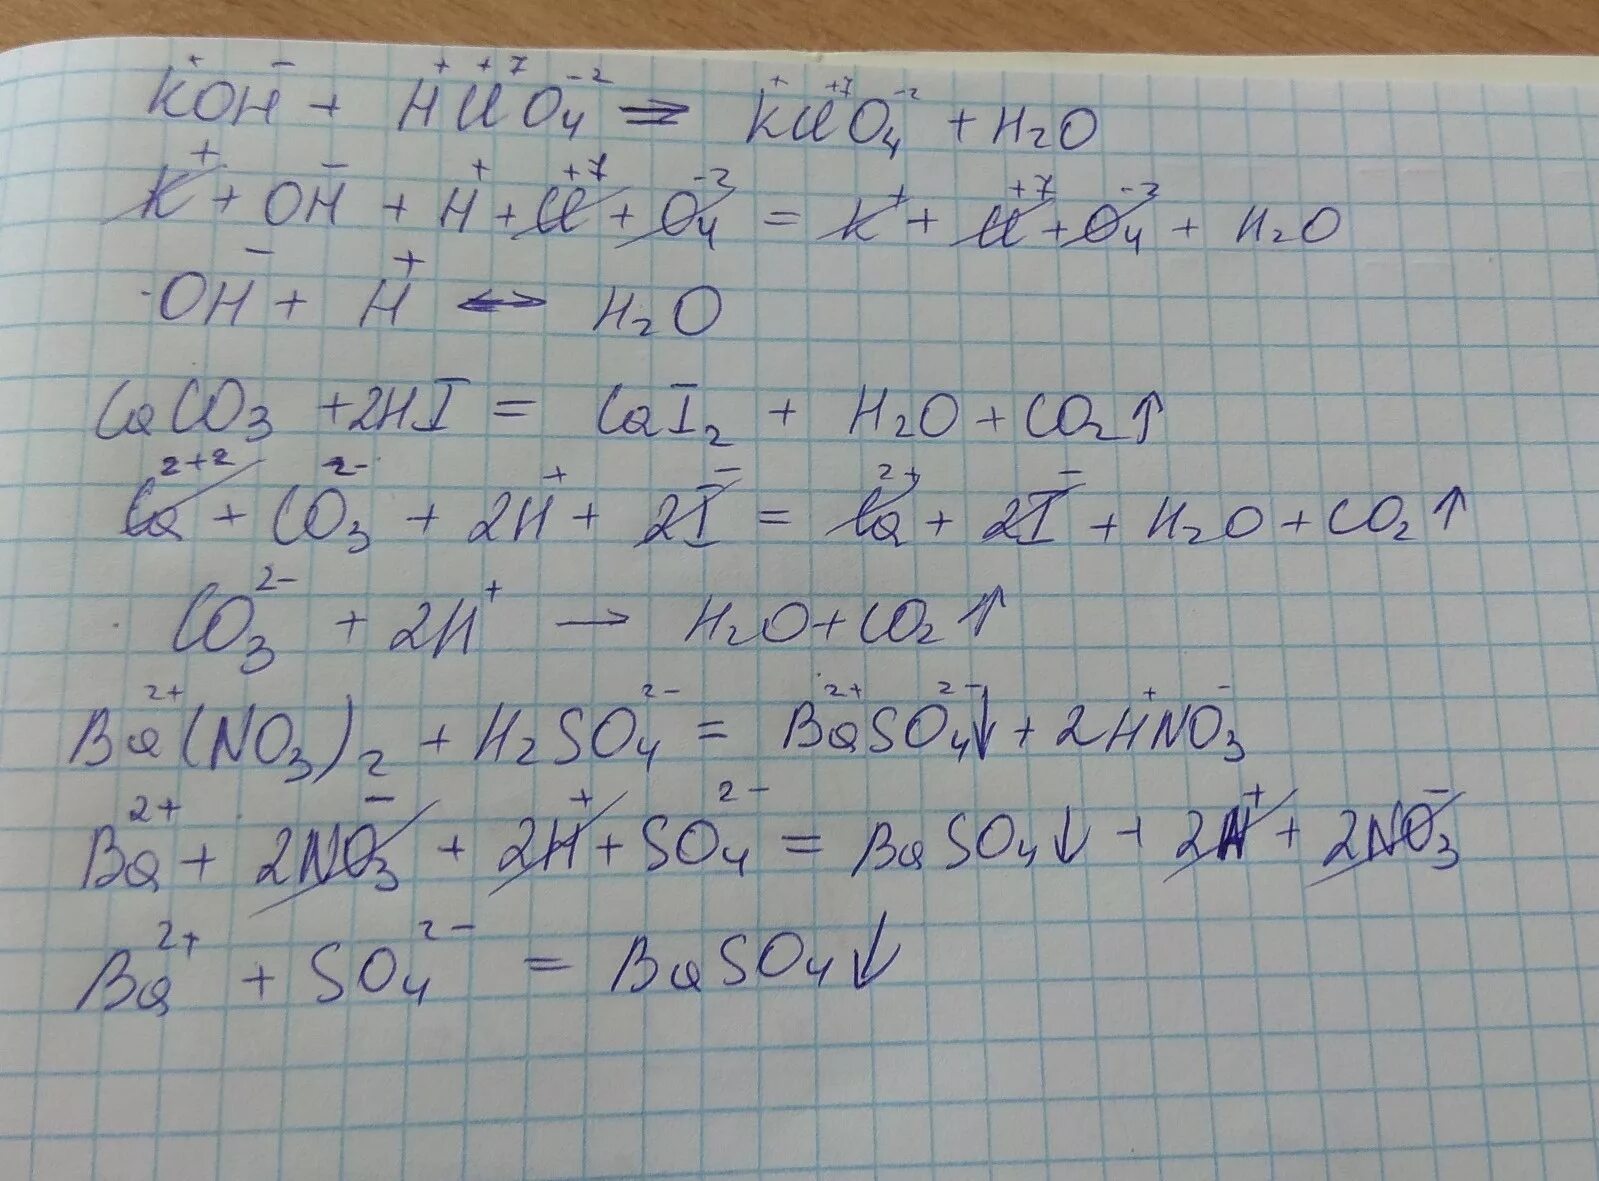 K⁺OH⁻ + H⁺Cl⁺⁷O₄⁻² ⇒ K⁺Cl⁺⁷O₄⁻² + H₂O
K⁺ + OH⁻ + H⁺ + Cl⁺⁷ + O₄⁻² = K⁺ + Cl⁺⁷ + O₄⁻² + H₂O
OH⁻ + H⁺ ↔ H₂O
CaCO₃ + 2HI = CaI₂ + H₂O + CO₂↑
Ca²⁺² + CO₃²⁻ + 2H⁺ + 2I⁻ = Ca²⁺ + 2I⁻ + H₂O + CO₂↑
CO₃²⁻ + 2H⁺ → H₂O + CO₂↑
Ba²⁺(NO₃)₂ + H₂SO₄²⁻ = Ba²⁺SO₄²⁻↓ + 2H⁺NO₃⁻
Ba²⁺ + 2NO₃⁻ + 2H⁺ + SO₄²⁻ = BaSO₄↓ + 2H⁺ + 2NO₃⁻
Ba²⁺ + SO₄²⁻ = BaSO₄↓